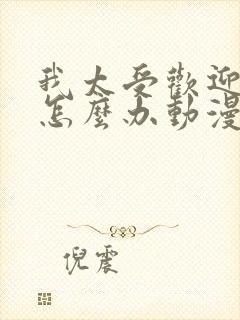 我太受歡迎
怎麼办動漫
倪震